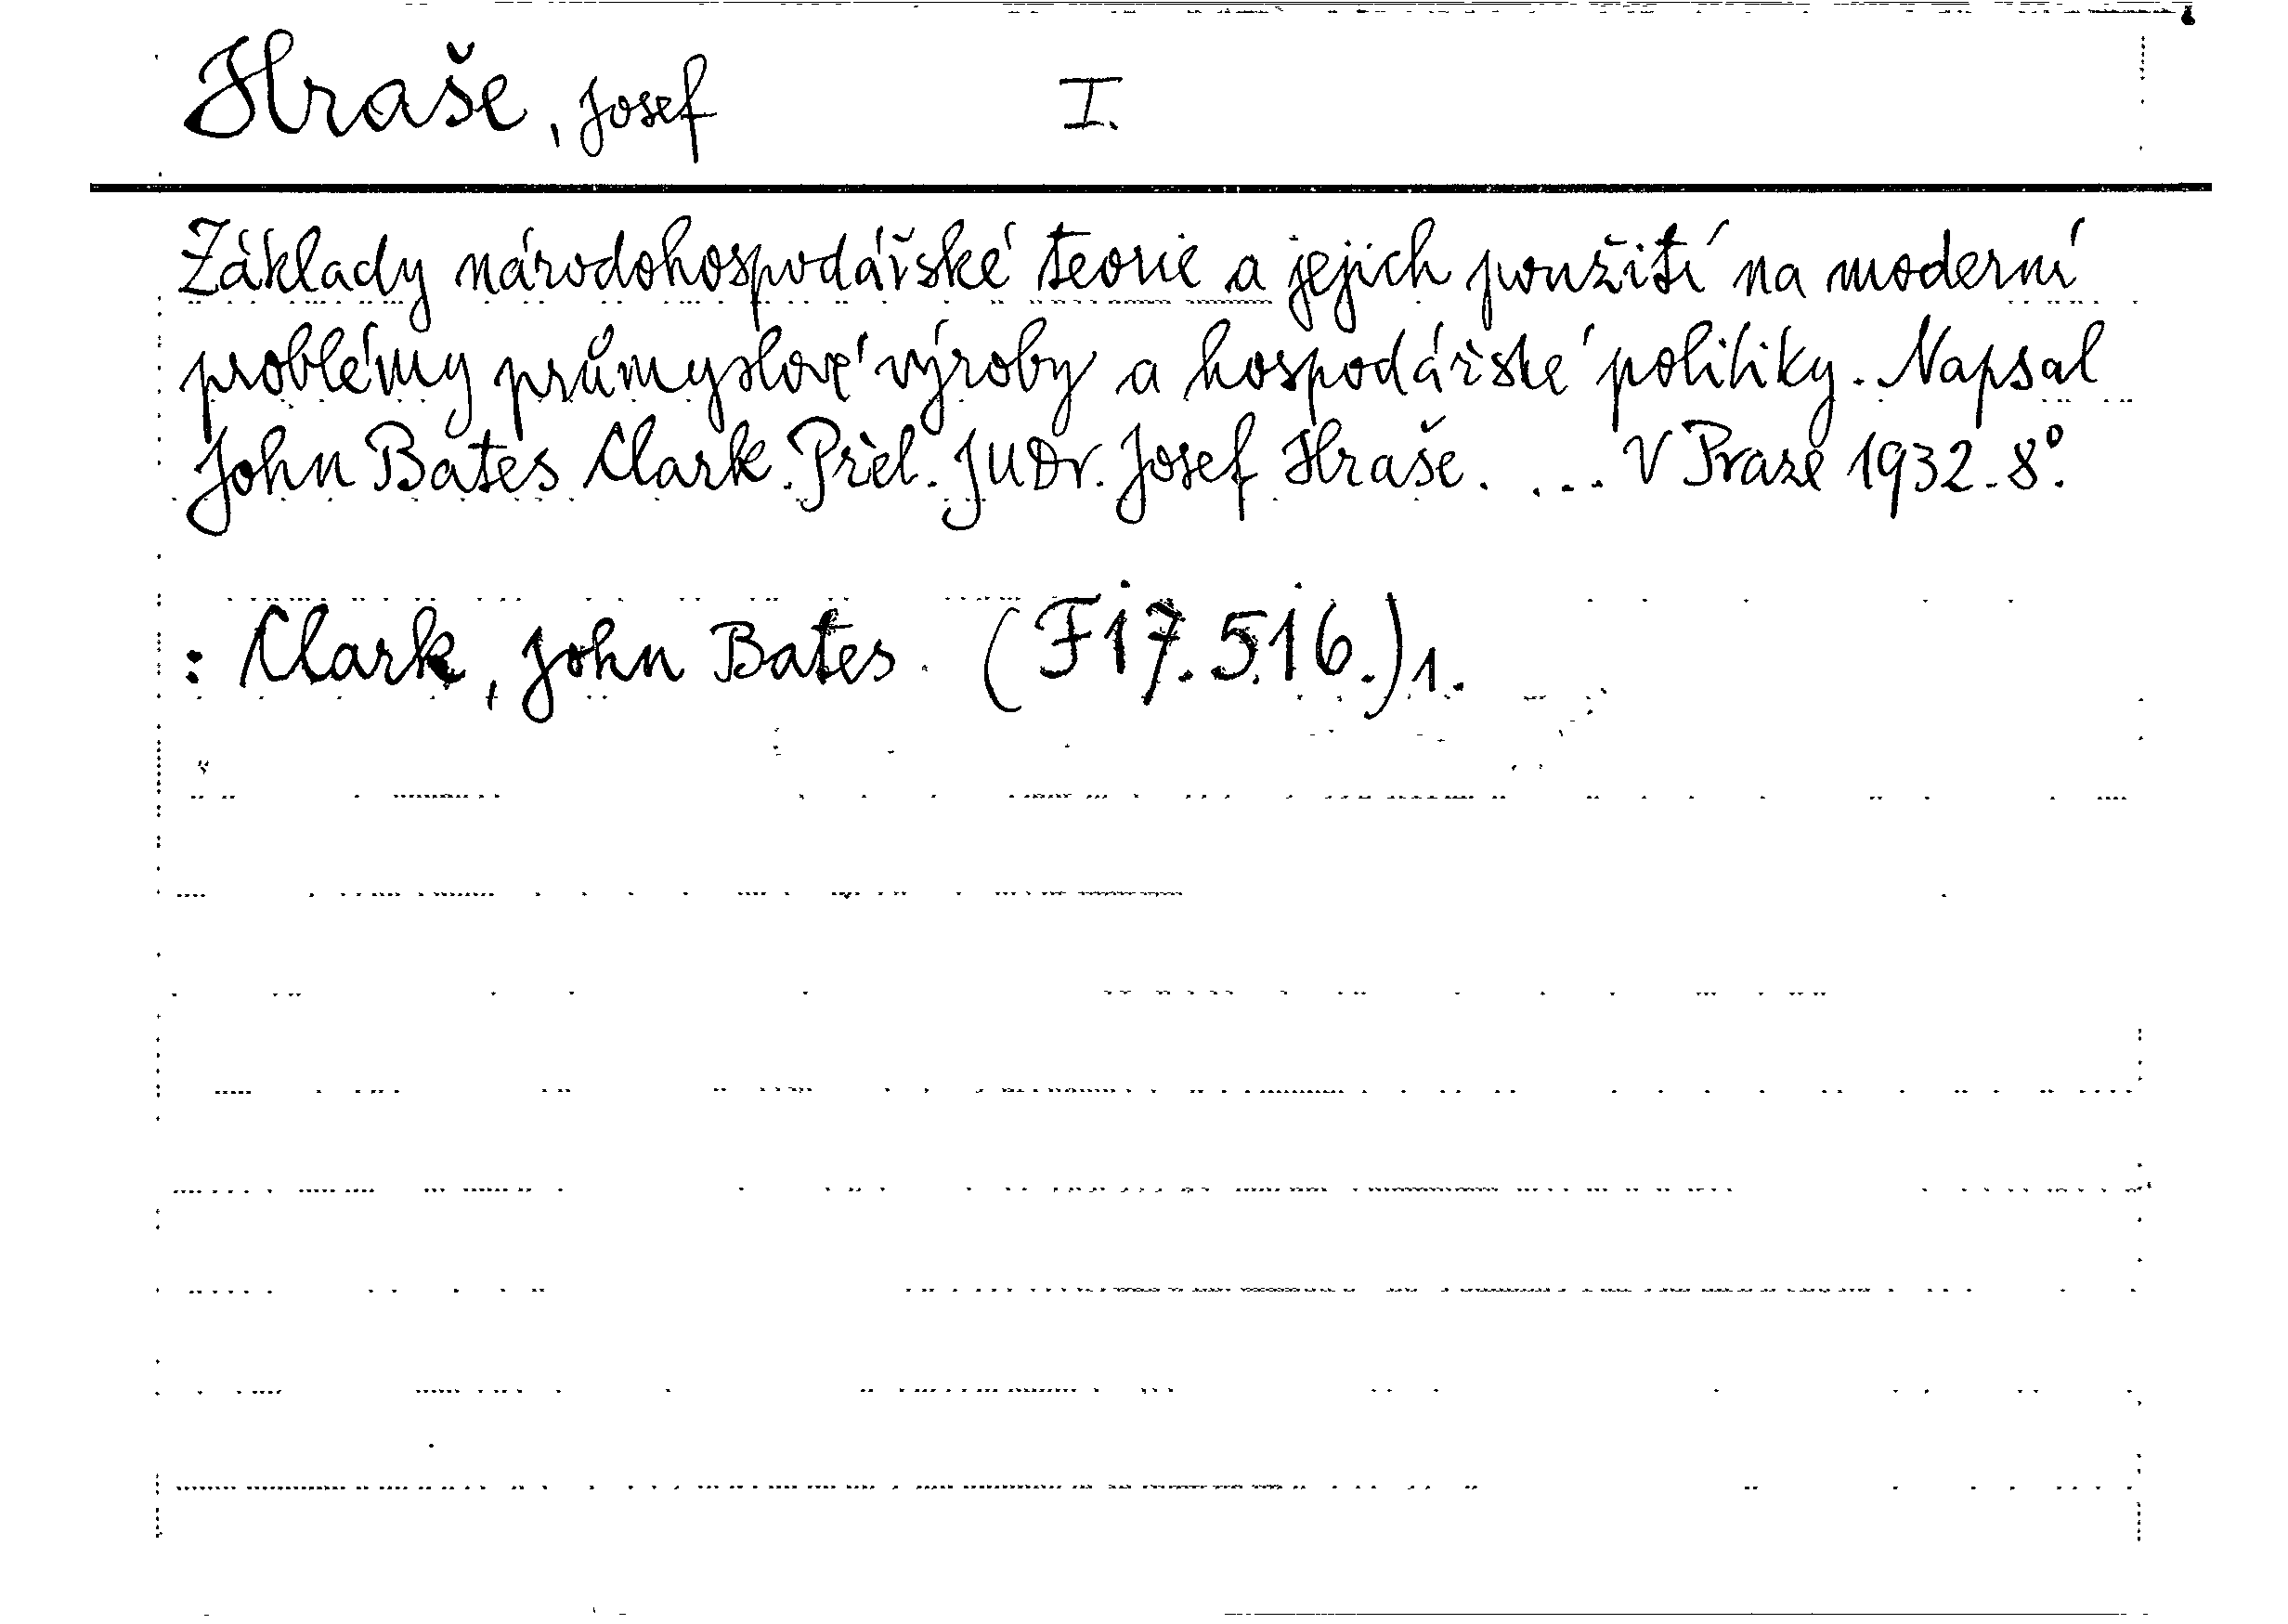 Hraše, Josef I.
Základy národohospodářské teorie a jejich použití na moderní
problémy průmyslové výroby a hospodářské politiky. Napsal
John Bates Clark. Přel. JUDr. Josef Hraše. ... V Praze 1932. 8°.
: Clark, John Bates. (Fi7.516.)1.